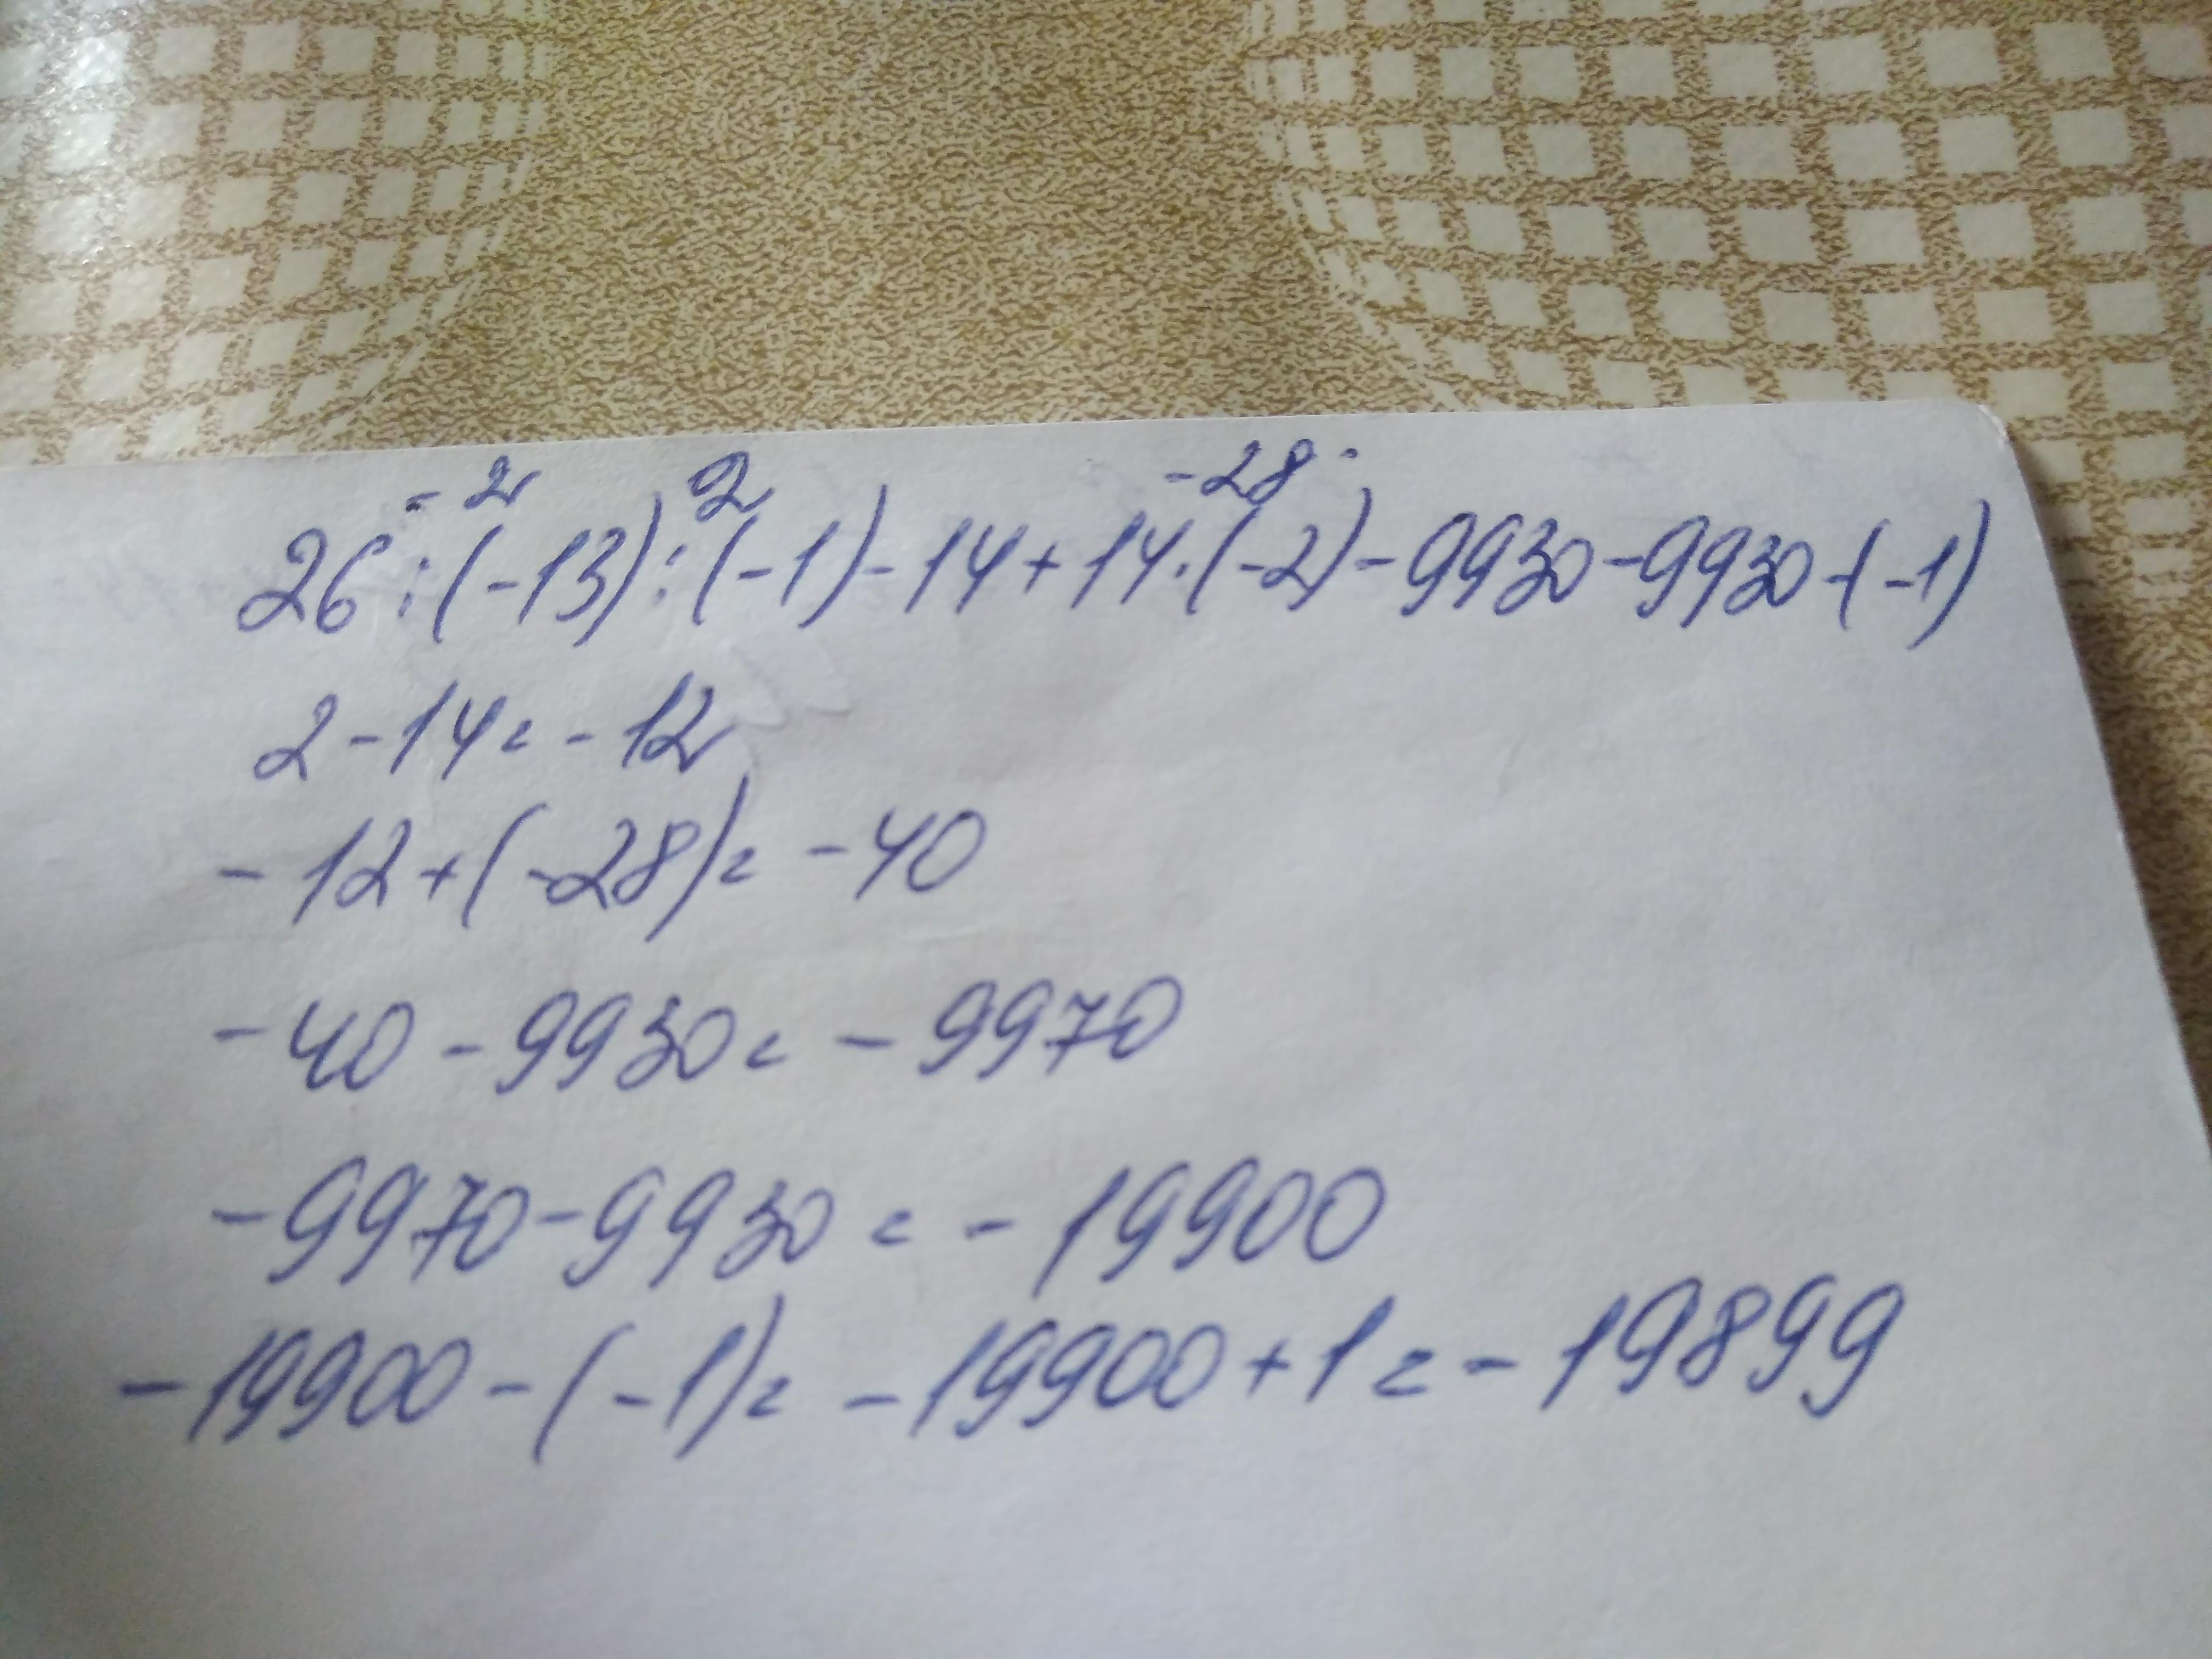 -2 2 -28
26:(-13):(-1)-14+14·(-2)-9930-9930-(-1)
2-14=-12
-12+(-28)=-40
-40-9930=-9970
-9970-9930=-19900
-19900-(-1)=-19900+1=-19899